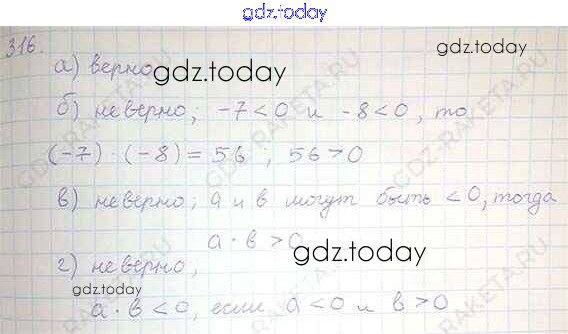 gdz.today
316.
gdz.today
а) верно
gdz.today
б) неверно; -7<0 и -8<0, то
(-7)·(-8)=56, 56>0
в) неверно; а и в могут быть <0, тогда
а·в>0
gdz.today
г) неверно,
gdz.today
а·в<0, если а<0 и в>0
GDZ-RAKETA.RU